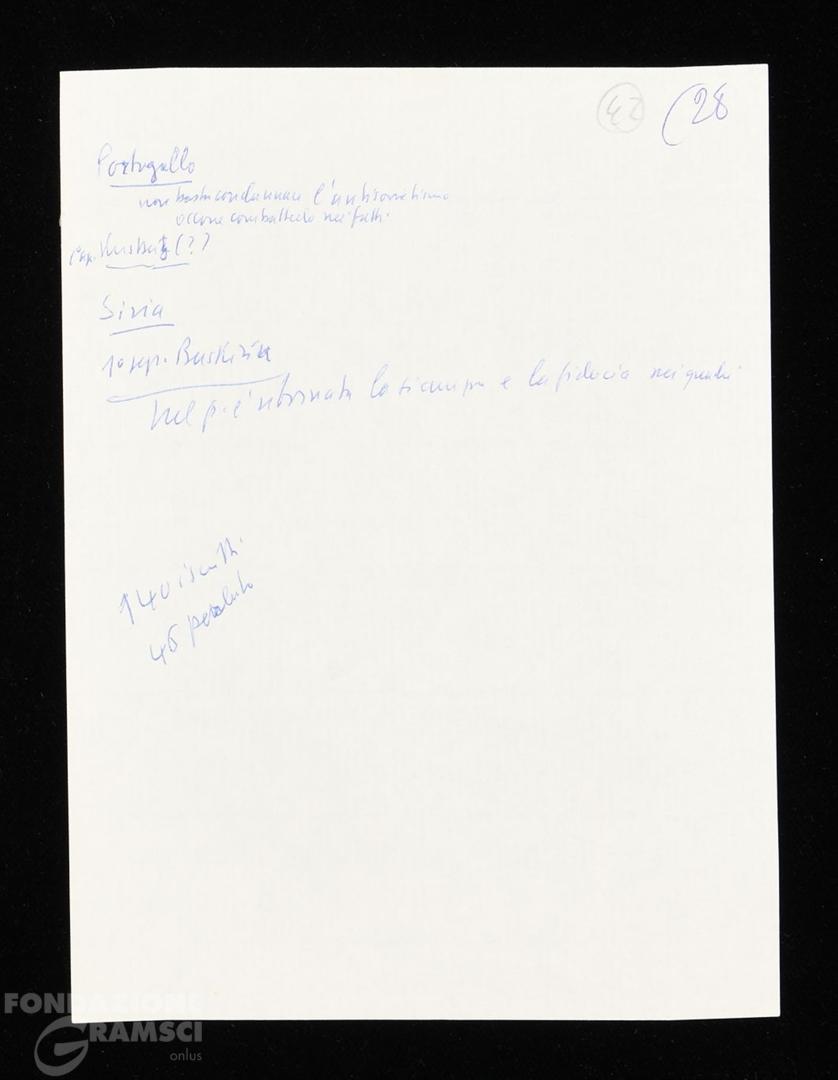 42
(28
Portogallo
non basta condannare l'antisovietismo
occorre combatterlo nei fatti.
(?)
Siria
1o sep. Baskiria
nel p. è ritornata la stampa e la fiducia nei quadri
140 iscritti
45
FONDAZIONE
GRAMSCI
onlus